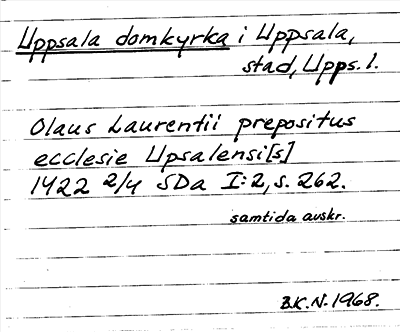 Uppsala domkyrka i Uppsala,
stad, Upps. l.
Olaus Laurentii prepositus
ecclesie Upsalensi[s]
1422 2/4 SDa I:2, s. 262.
samtida avskr.
B.K.N. 1968.